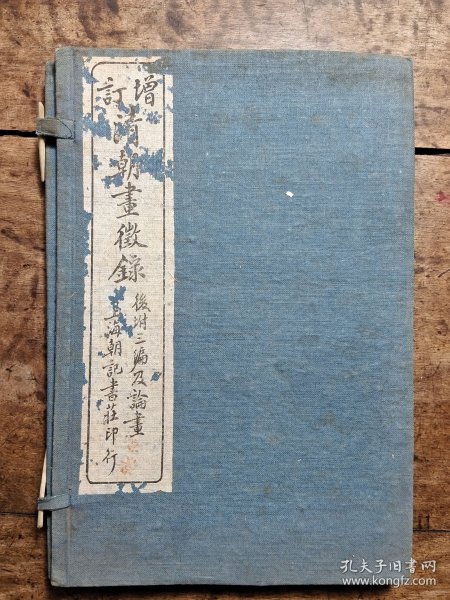 增訂
清朝畫徵錄
後附二編及論畫
上海朝記書莊印行
孔夫子旧书网
www.kongfz.com